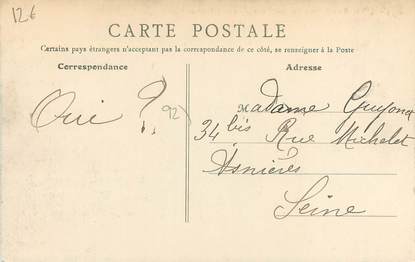 12€
CARTE POSTALE
Certains pays étrangers n'acceptant pas la correspondance de ce côté, se renseigner à la Poste
Correspondance
Adresse
Oui ?
92
Madame Guyonx
34 bis Rue Michelet
Asnières
Seine